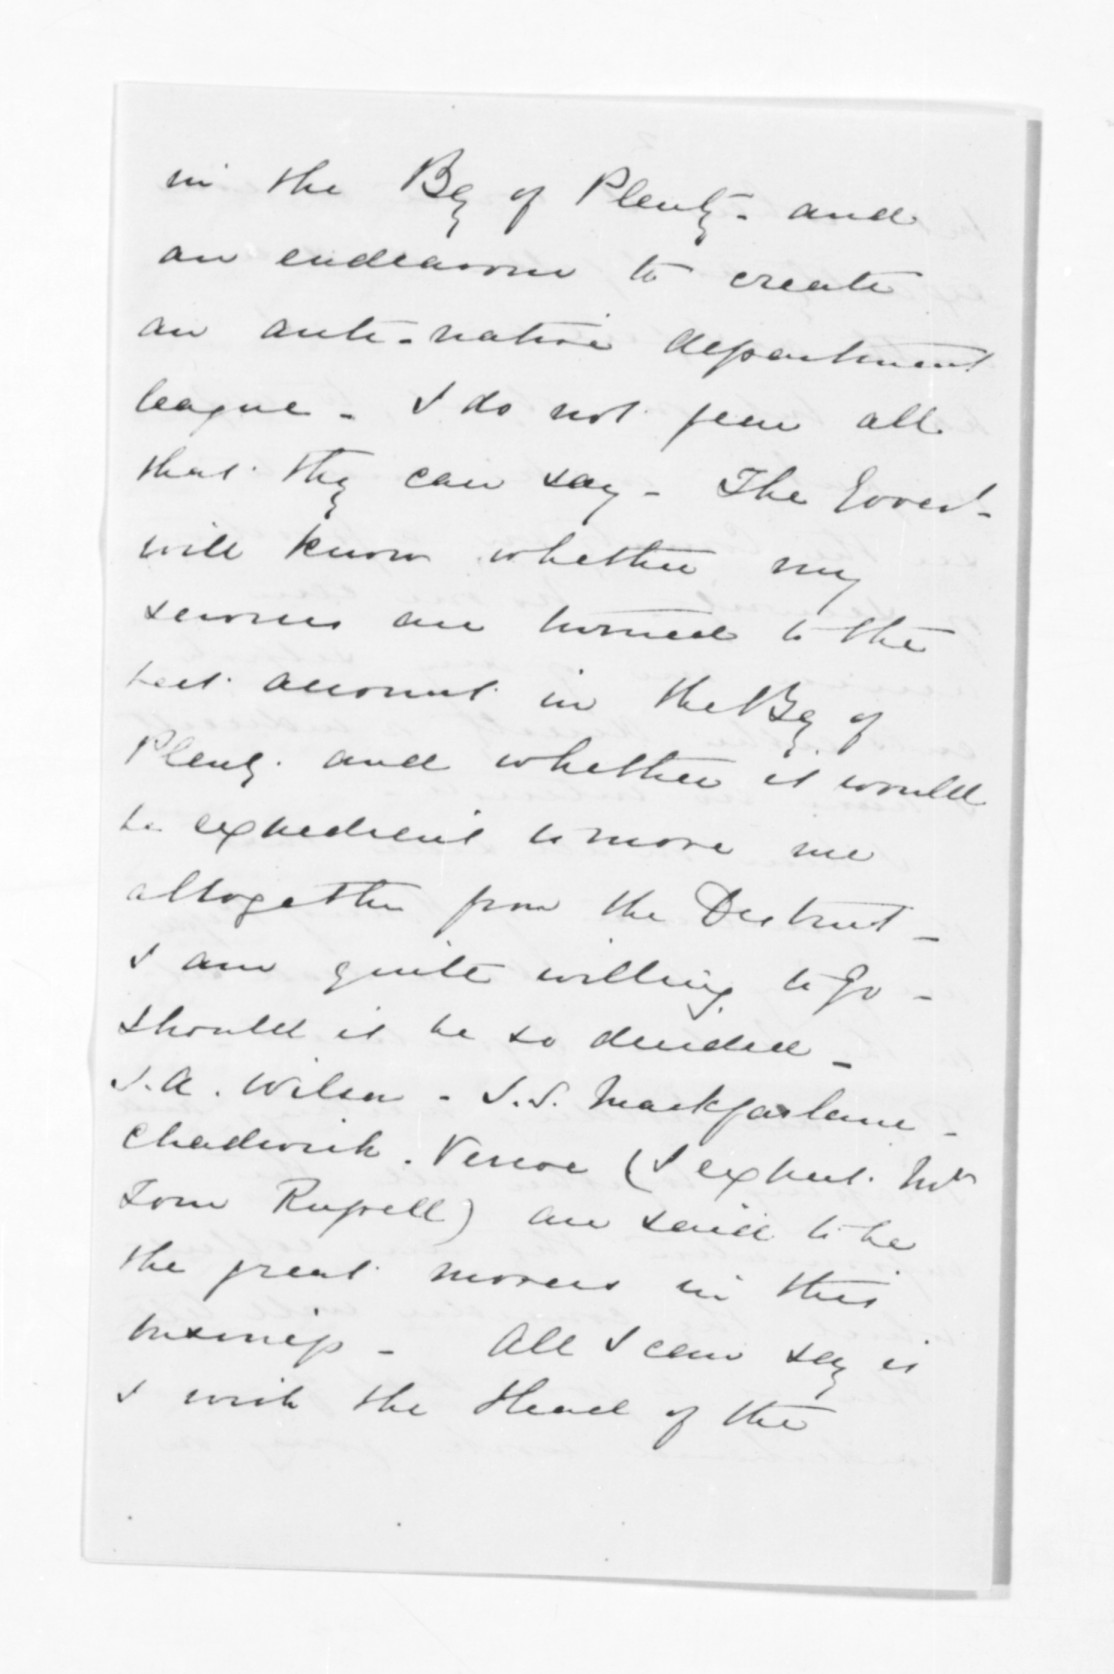 in the Bay of Plenty - and
an endeavour to create
an anti-native department
league - I do not fear all
that they can say - The Govert -
will know whether my
services are turned to the
best account in the Bay of
Plenty. and whether it would
be expedient to move me
altogether from the District -
I am quite willing to go -
should it be so decided -
J.A. Wilson - J.S. Mackfarlane -
Chadwick. Vercoe (I expect Mr
Tom Russell) are said to be
the great movers in this
business - All I can say is
I wish the Head of the